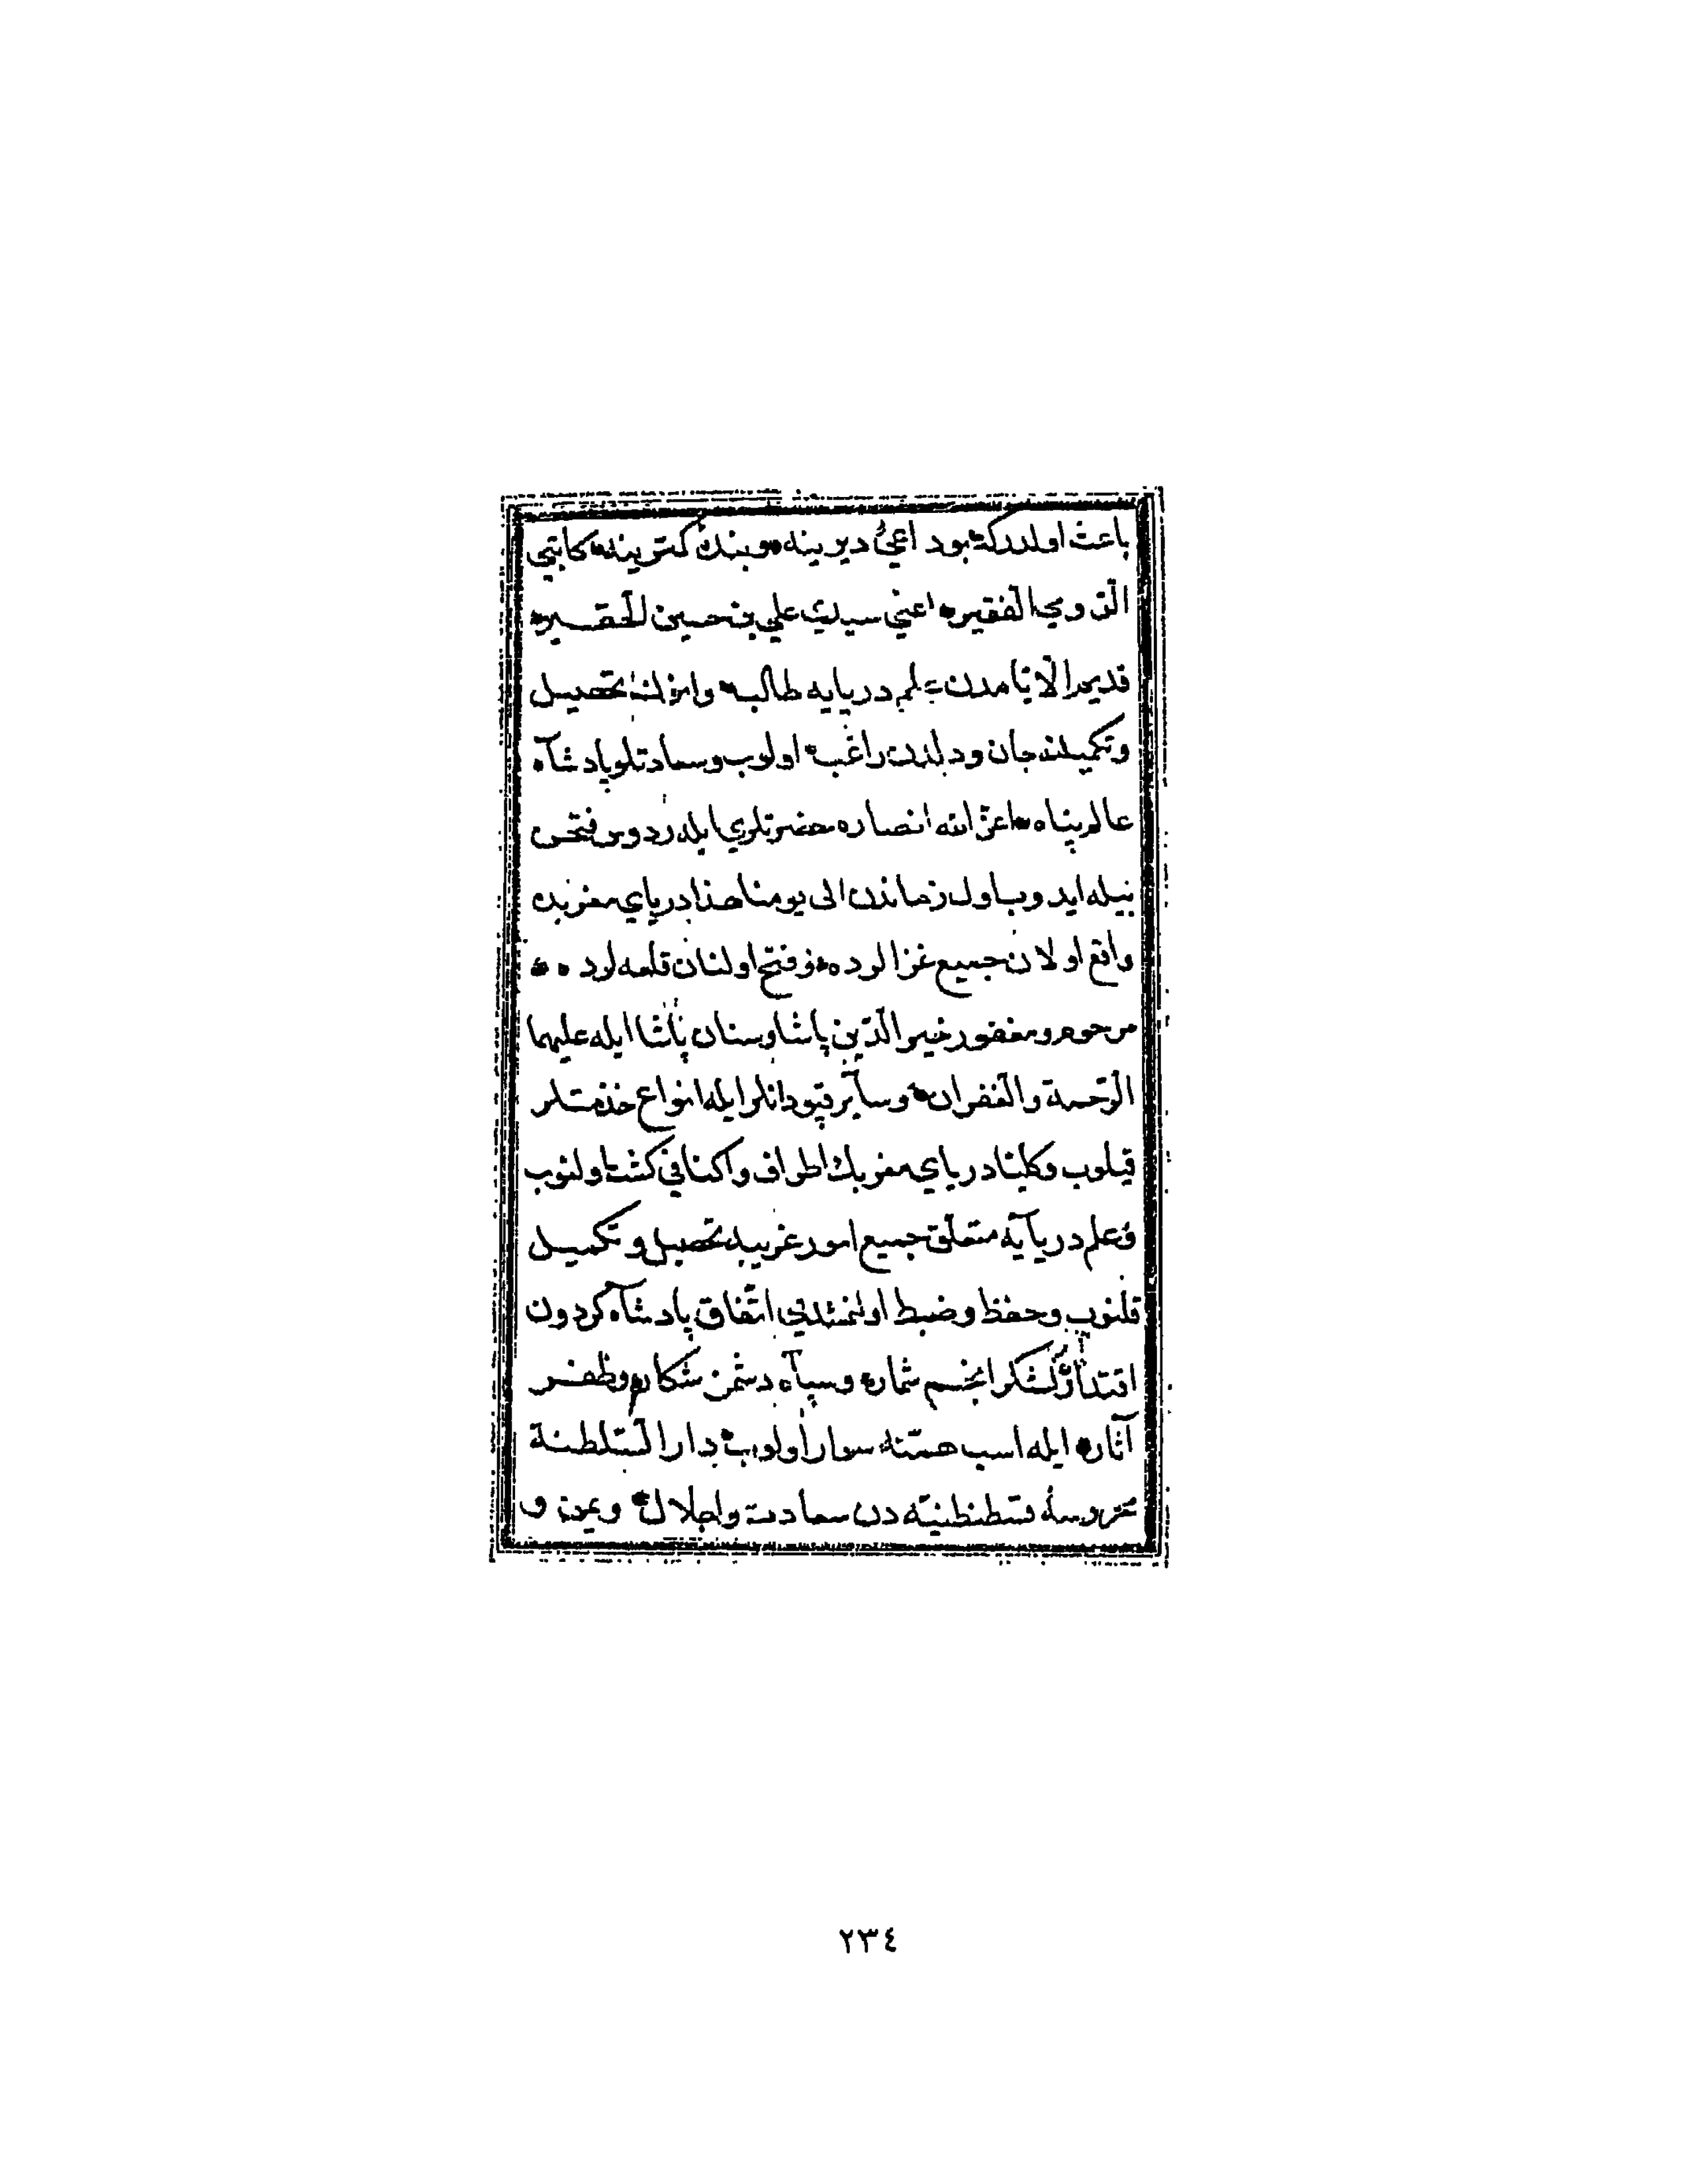 باعث اولدر كه بو داعئ ديرينه و بنده كمترينه كاتبي
الرومي الفقير اعني سيدي علي بن حسين الحقير
قديم الايامدن علم دريايه طالب وانك تحصيل
وتكميلنه جان ودلدن راغب اولوب وسعادتلو پادشاه
عالم پناه اعزّ الله انصاره حضرتلري ايله ردوس فتحن
بيله ايدوب اول زماندن الى يومنا هذا درياي مغربده
واقع اولان جميع غزالرده و فتح اولنان قلعه لرده
مرحوم و مغفور خير الدّين پاشا وسنان پاشا ايله عليهما
الرّحمة والغفران وساير قپودانلر ايله انواع خذمتلر
قيلوب وكليّا درياي مغربك اطراف واكنافي كشت اولنوب
وعلم دريايه متعلّق جميع امور غريبه تحصيل و تكميل
قلنوب وحفظ وضبط اولنمشدي اتّفاق پادشاه كردون
اقتدار لشكر انجم شمار وسپاه دشمن شكار وظفر
آثار ايله اسب همّته سوار اولوب دار السّلطنة
محروسه قسطنطنيّه دن سعادت واجلال ويمن و
٢٣٤